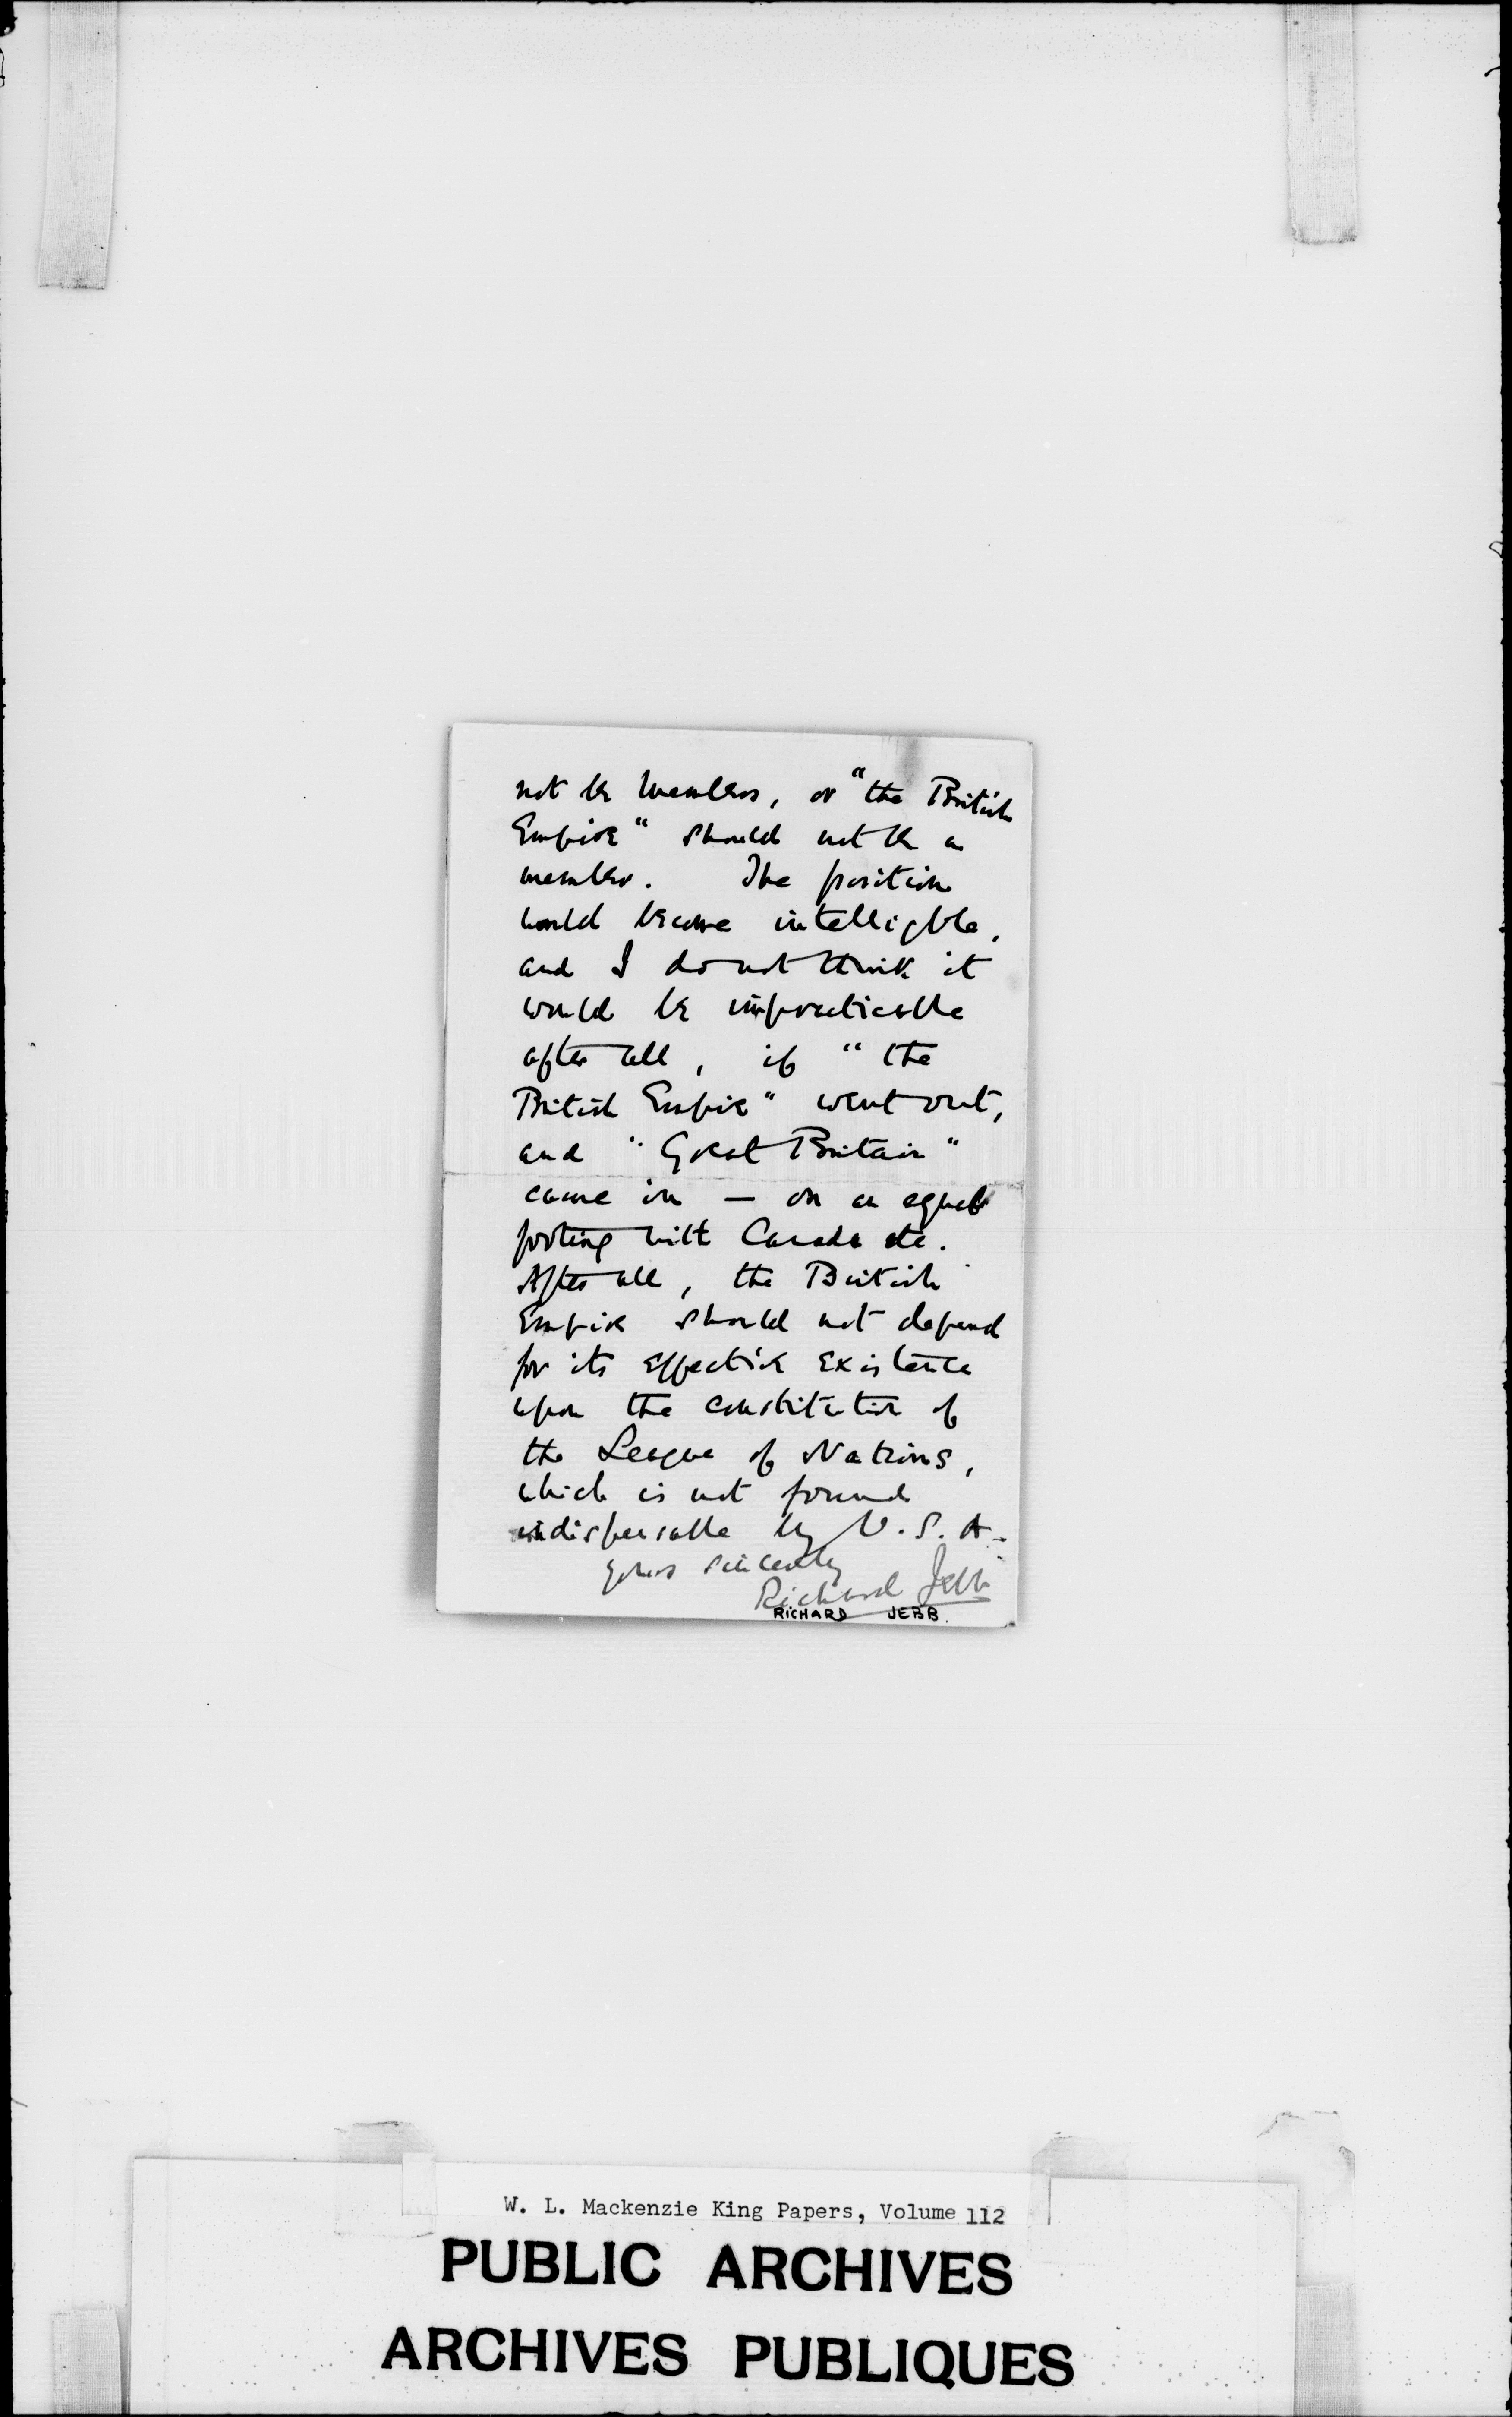 not be members, or "the British
Empire" should not be a
member. The position
would become intelligible,
and I do not think it
would be impracticable
after all, if "the
British Empire" went out,
and "Great Britain"
came in — on an equal
footing with Canada etc.
After all, the British
Empire should not depend
for its effective existence
upon the constitution of
the League of Nations,
which is not found
indispensable by U.S.A.
Yours sincerely
Richard Jebb
RICHARD JEBB.
W. L. Mackenzie King Papers, Volume 112
PUBLIC ARCHIVES
ARCHIVES PUBLIQUES